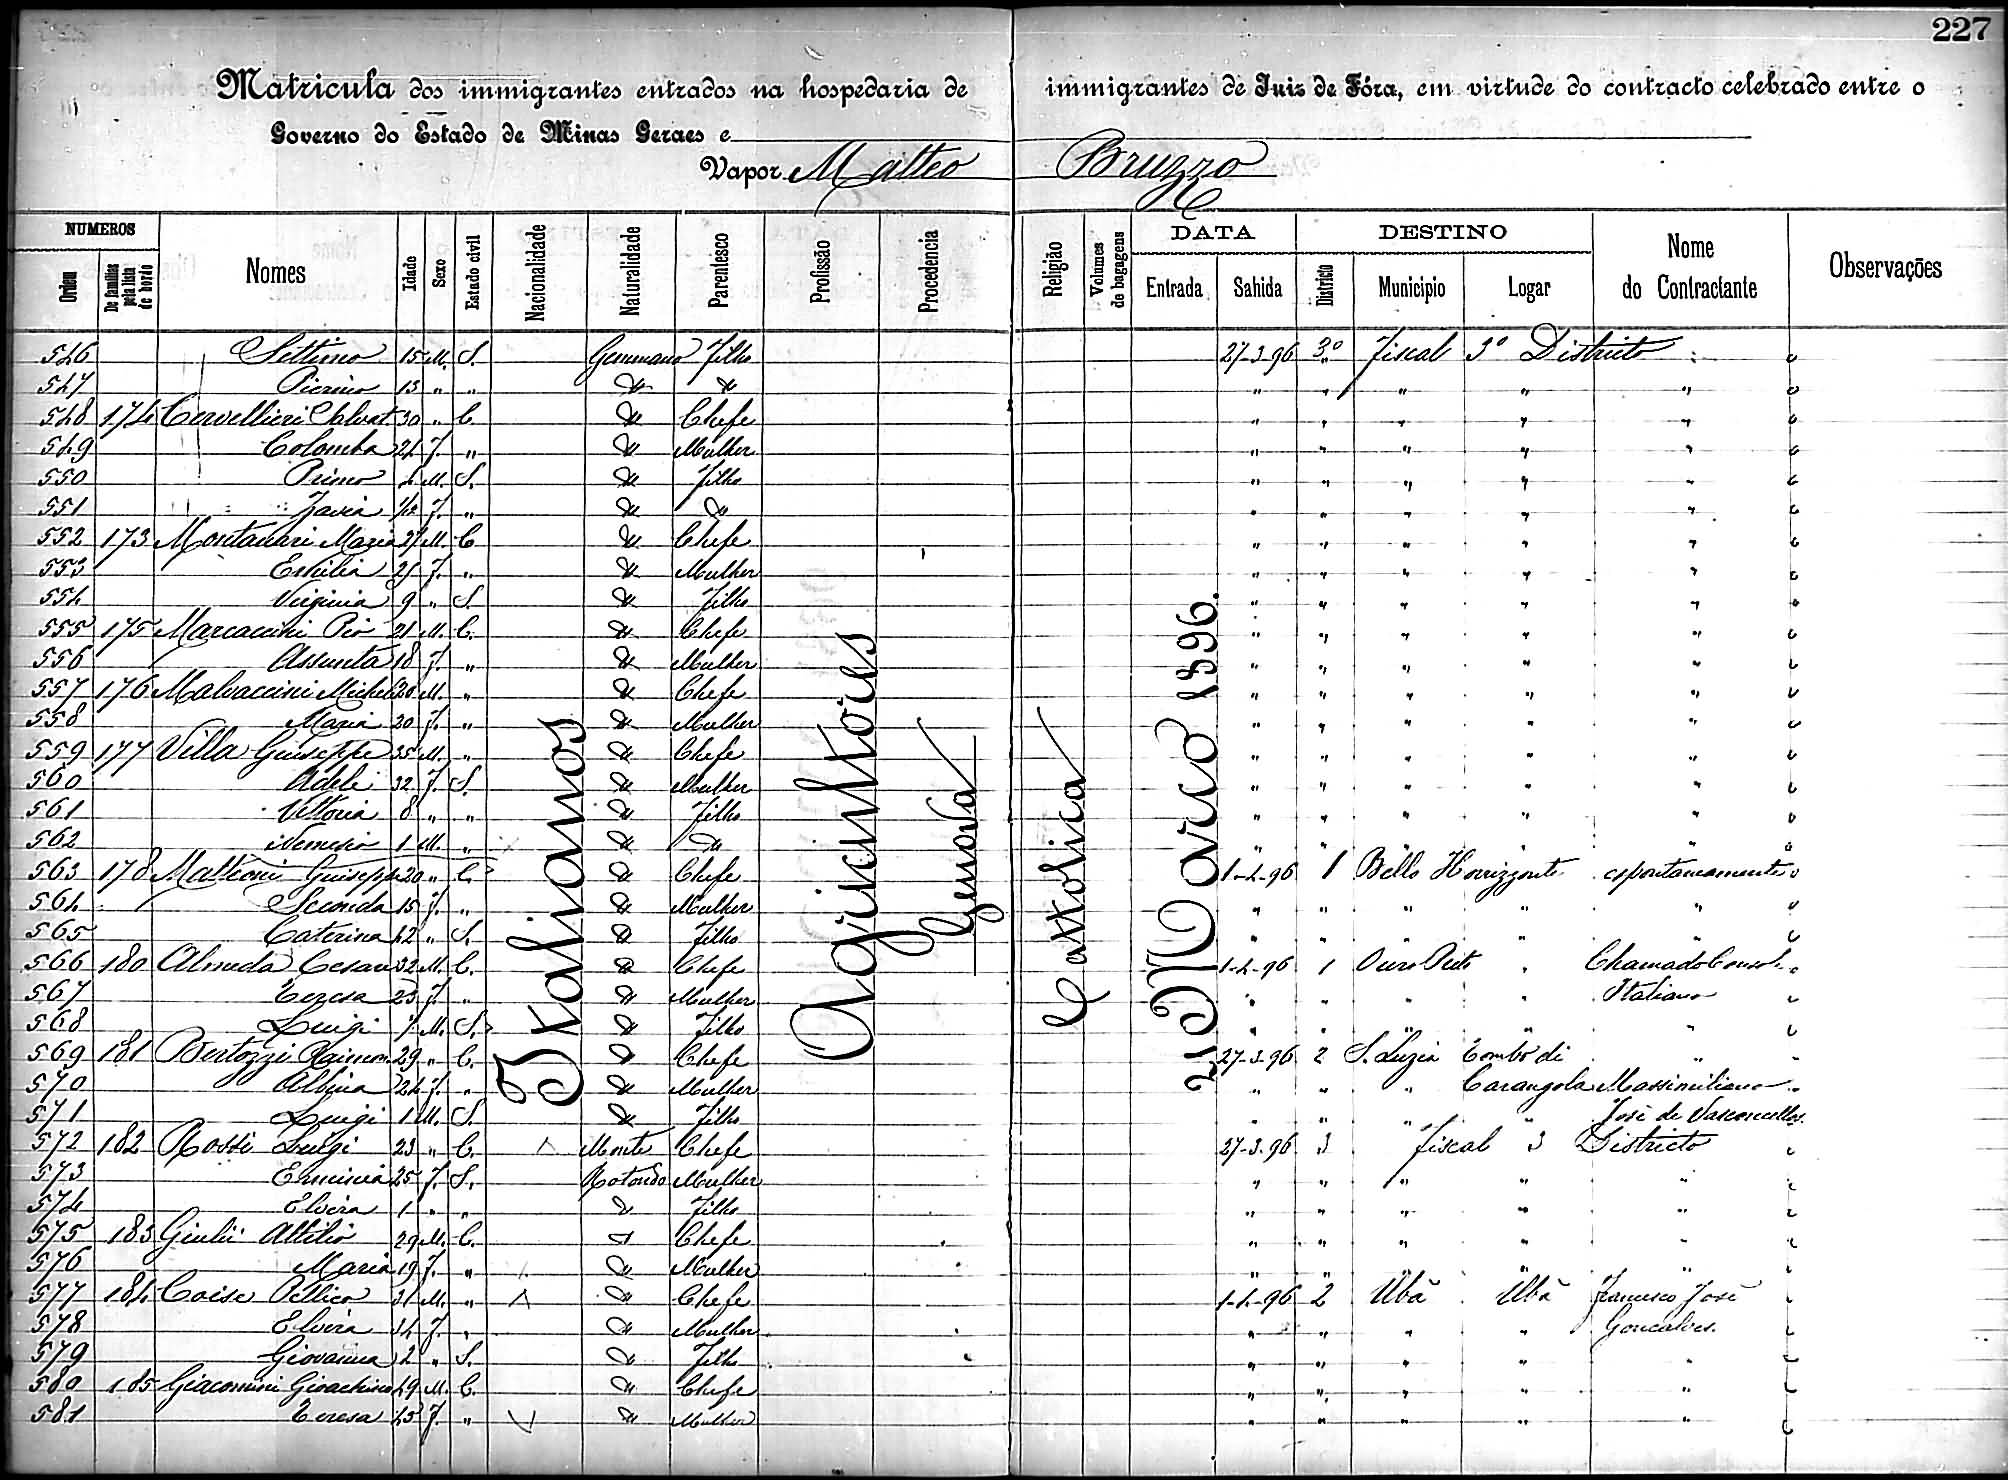 227
Matricula dos immigrantes entrados na hospedaria de immigrantes de Juiz de Fóra, em virtude do contracto celebrado entre o
Governo do Estado de Minas Geraes e
Vapor Matteo Bruzzo
NUMEROS DATA DESTINO
Ordem De familias pela lista de bordo Nomes Idade Sexo Estado civil Nacionalidade Naturalidade Parentesco Profissão Procedencia Religião Volumes de bagagens Entrada Sahida Districto Municipio Logar Nome do Contractante Observações
Italianos
Agricultores
Genova
Cattolica
21 Março 1896.
546 Settimo 15 M. S. Gemmano Filho 27-3-96 3º Fiscal 3º Districto
547 Pierino 13 " " " " " " " " "
548 174 Cervellieri Salvat. 30 " C " Chefe " " " " "
549 Colomba 21 F. " " Mulher " " " " "
550 Primo M. S. " Filho " " " " "
551 F. " " " " " " " "
552 173 Montanari Maria M. C " Chefe " " " " "
553 Ersilia F. " " Mulher " " " " "
554 Virginia 9 " S. " Filho " " " " "
555 175 Marcaccini Pio 21 M. C. " Chefe " " " " "
556 Assunta 18 F. " " Mulher " " " " "
557 176 Malvaccini Michele 20 M. " " Chefe " " " " "
558 Maria 20 F. " " Mulher " " " " "
559 177 Villa Giuseppe 35 M. " " Chefe " " " " "
560 Adele 32 F. S. " Mulher " " " " "
561 Vittoria 8 " " " Filho " " " " "
562 Nemesio 1 M. " " " " " " " "
563 178 Matteoni Giuseppe 20 " C. " Chefe 1-4-96 1 Bello Horizzonte espontaneamente
564 Seconda 15 F. " " Mulher " " " " "
565 Caterina 42 " S. " Filho " " " " "
566 180 Almeda Cesare 32 M. C. " Chefe 1-4-96 1 Ouro Preto " Chamado Consol.
567 Tereza 23 F. " " Mulher " " " " Italiano
568 Luigi M. S. " Filho " " " " "
569 181 Bertozzi Raimon. 29 " C. " Chefe 27-3-96 2 S. Luzia Tombo di "
570 Albina 24 F. " " Mulher " " " Carangola Massimiliano
571 Luigi 1 M. S. " Filho " " " " José de Vasconcellos
572 182 Rossi Luigi 23 " C. Monte Chefe 27-3-96 3 Fiscal 3 Districto
573 Erminia 25 F. S. Rotondo Mulher " " " " "
574 Elvira 1 " " " Filho " " " " "
575 183 Giulii Attilio 29 M. C. " Chefe " " " " "
576 Maria 19 F. " " Mulher " " " " "
577 184 Coise Pellico 31 M. " " Chefe 1-4-96 2 Ubà Ubà Francisco José
578 Elvira 34 F. " " Mulher " " " " Goncalves.
579 Giovanna 2 " S. " Filho " " " " "
580 185 Giacomini Gioachino 49 M. C. " Chefe " " " " "
581 Teresa 45 F. " " Mulher " " " " "